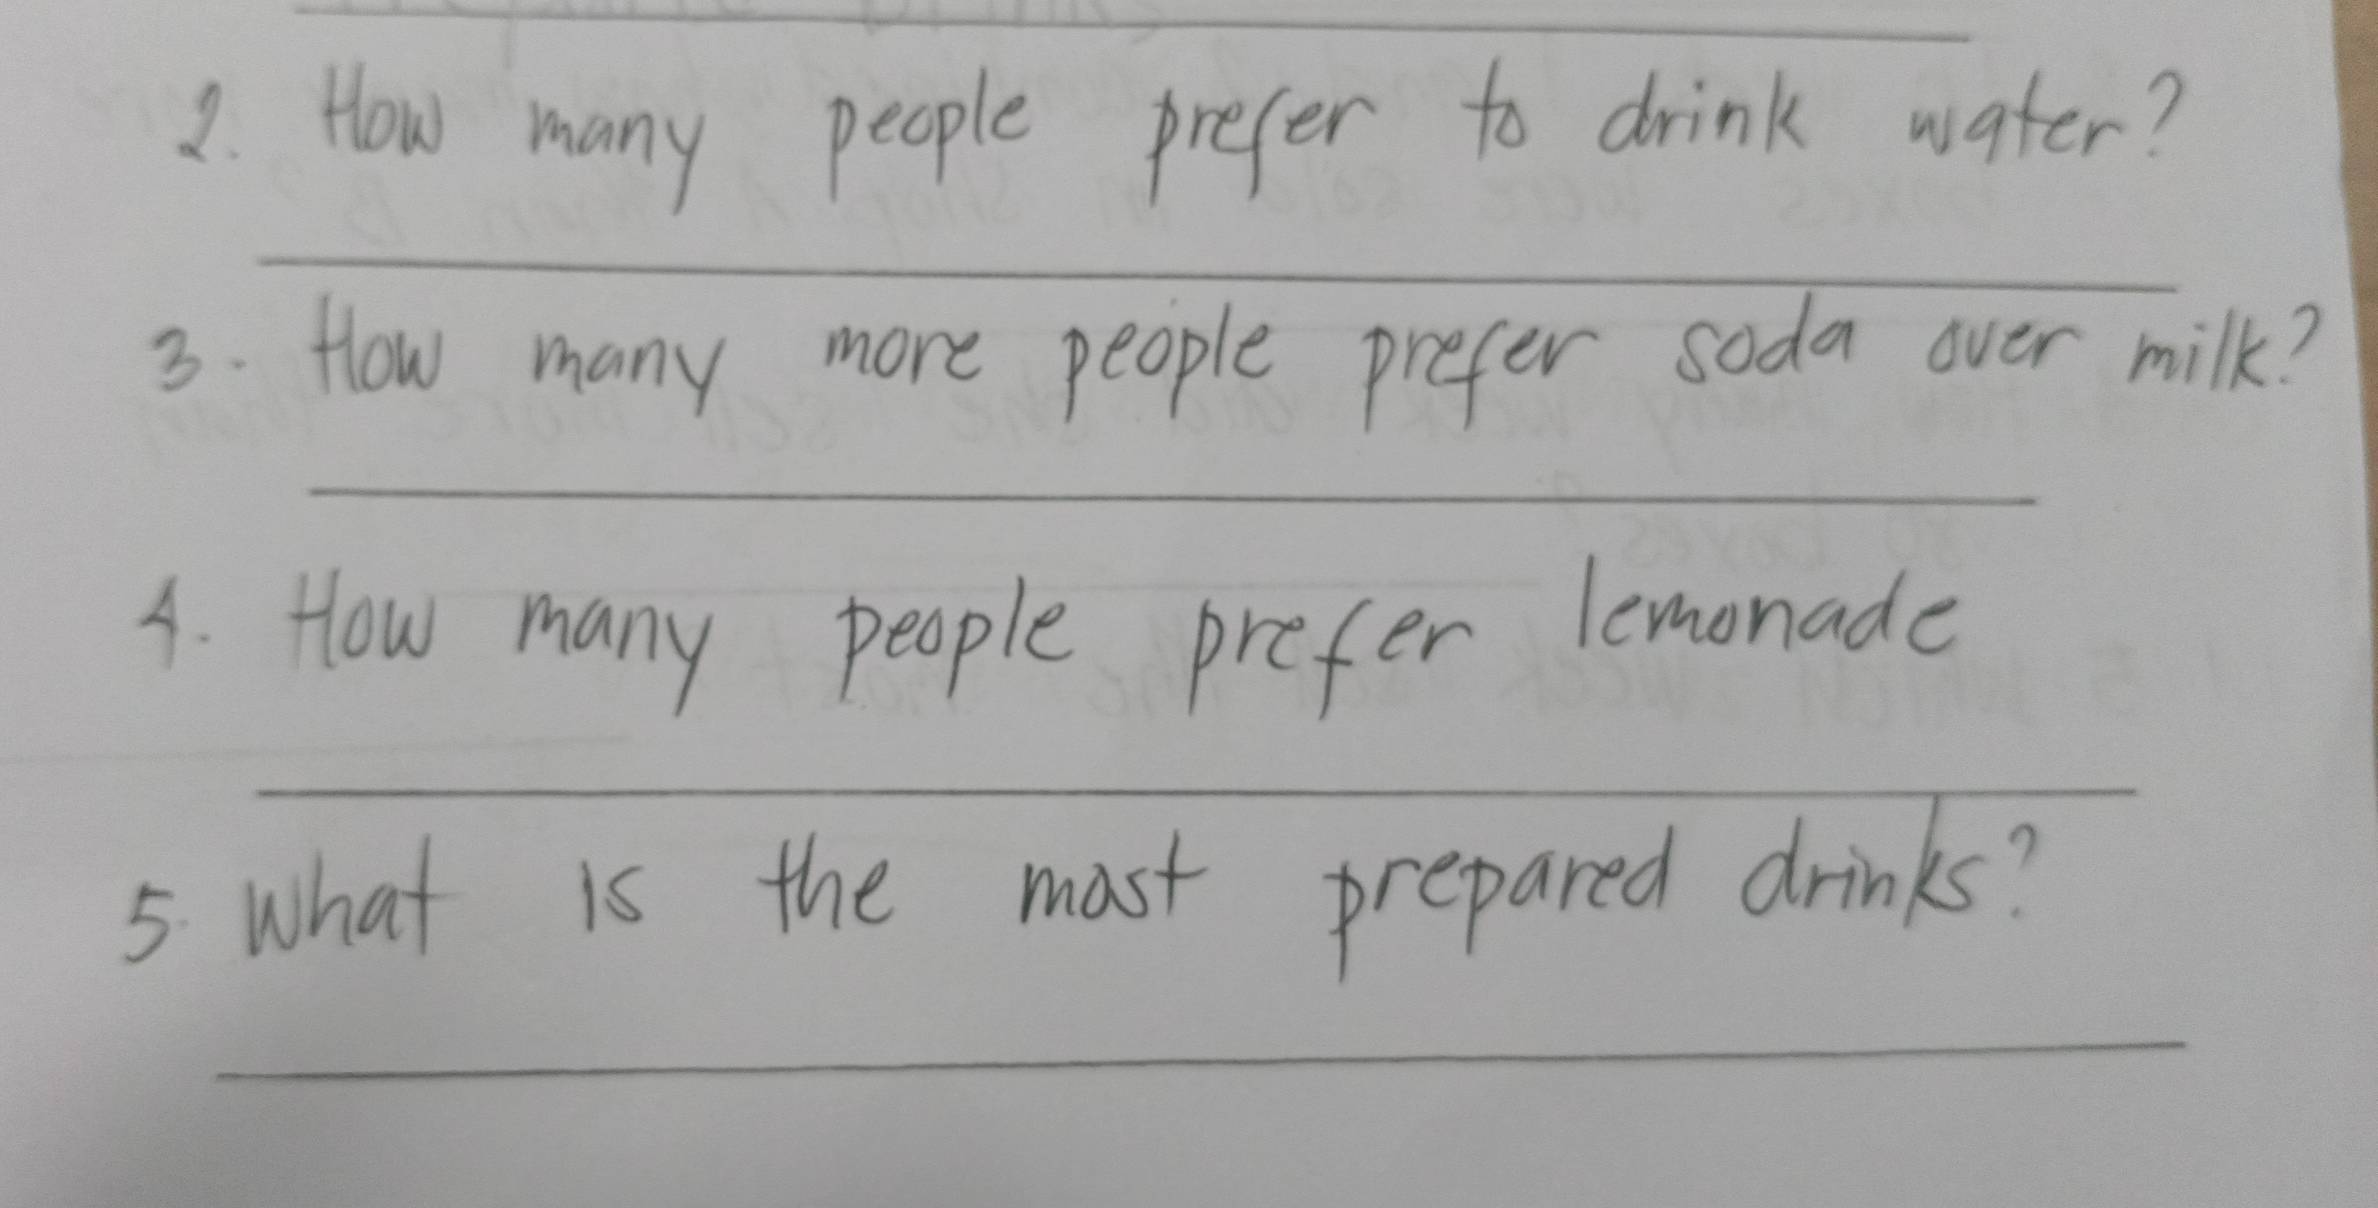 2. How many people prefer to drink water?
3. How many more people prefer soda over milk?
4. How many people prefer lemonade
5. What is the most prepared drinks?